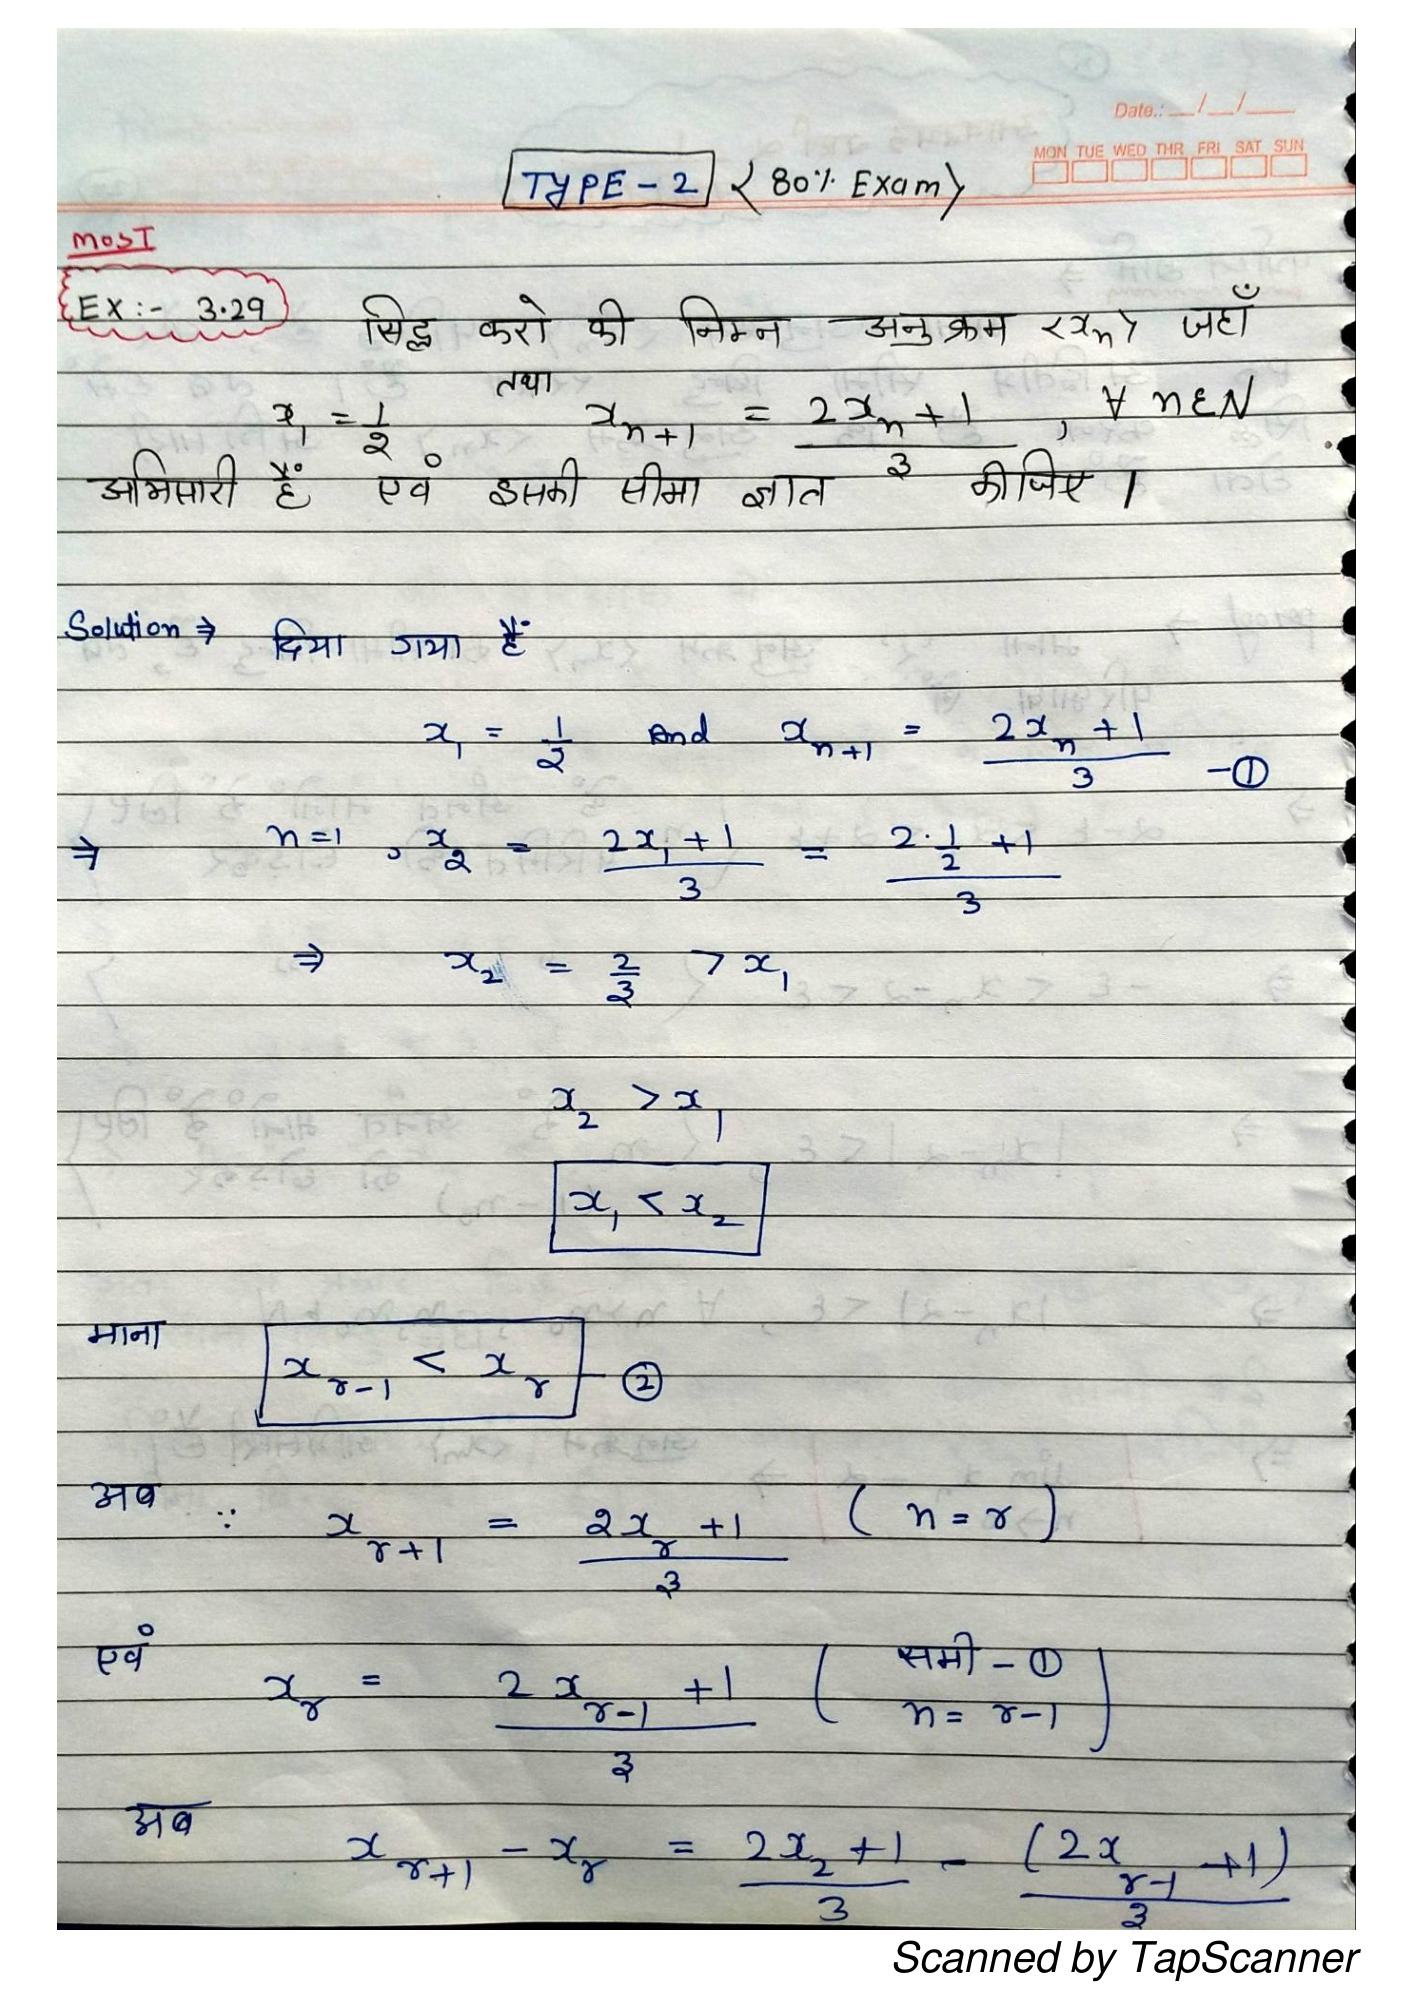 Date.: __/__/____
MON TUE WED THR FRI SAT SUN
TYPE - 2 < 80% Exam >
MOST
EX :- 3.29 सिद्ध करो की निम्न अनुक्रम <xₙ> जहाँ
x₁ = 1/2 तथा xₙ₊₁ = (2xₙ + 1)/3 , ∀ n ε N
अभिसारी हैं एवं इसकी सीमा ज्ञात कीजिए ।
Solution ⇒ दिया गया हैं
x₁ = 1/2 and xₙ₊₁ = (2xₙ + 1)/3 - ①
⇒ n=1 , x₂ = (2x₁ + 1)/3 = (2·1/2 + 1)/3
⇒ x₂ = 2/3 > x₁
x₂ > x₁
x₁ < x₂
माना x_{r-1} < x_r - ②
अब ∵ x_{r+1} = (2x_r + 1)/3 ( n = r )
एवं x_r = (2x_{r-1} + 1)/3 ( समी - ① n = r-1 )
अब x_{r+1} - x_r = (2x₂ + 1)/3 - (2x_{r-1} + 1)/3
Scanned by TapScanner